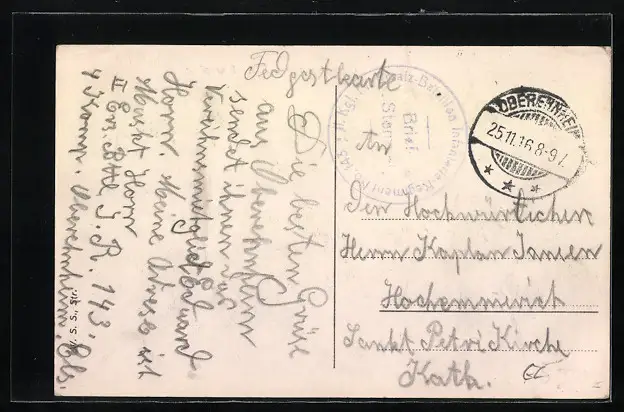 Feldpostkarte
Die besten Grüße
aus Oberehnheim
sendet ihnen das
Vereinsmitglied Eduard
Horn. Meine Adresse ist
Musket Horn
II Ers. Btl. J. R. 143.
4 Komp. Oberehnheim. Els.
W. S. S., Str.
Ersatz-Bataillon Infanterie-Regiment No. 143
Brief
Stempel
OBEREHNHEIM
25.11.16.8-9V.
An
Den Hochwürdichen
Herrn Kaplan Jansen
Hochemmerict
Sankt Petri Kirche
Kath.